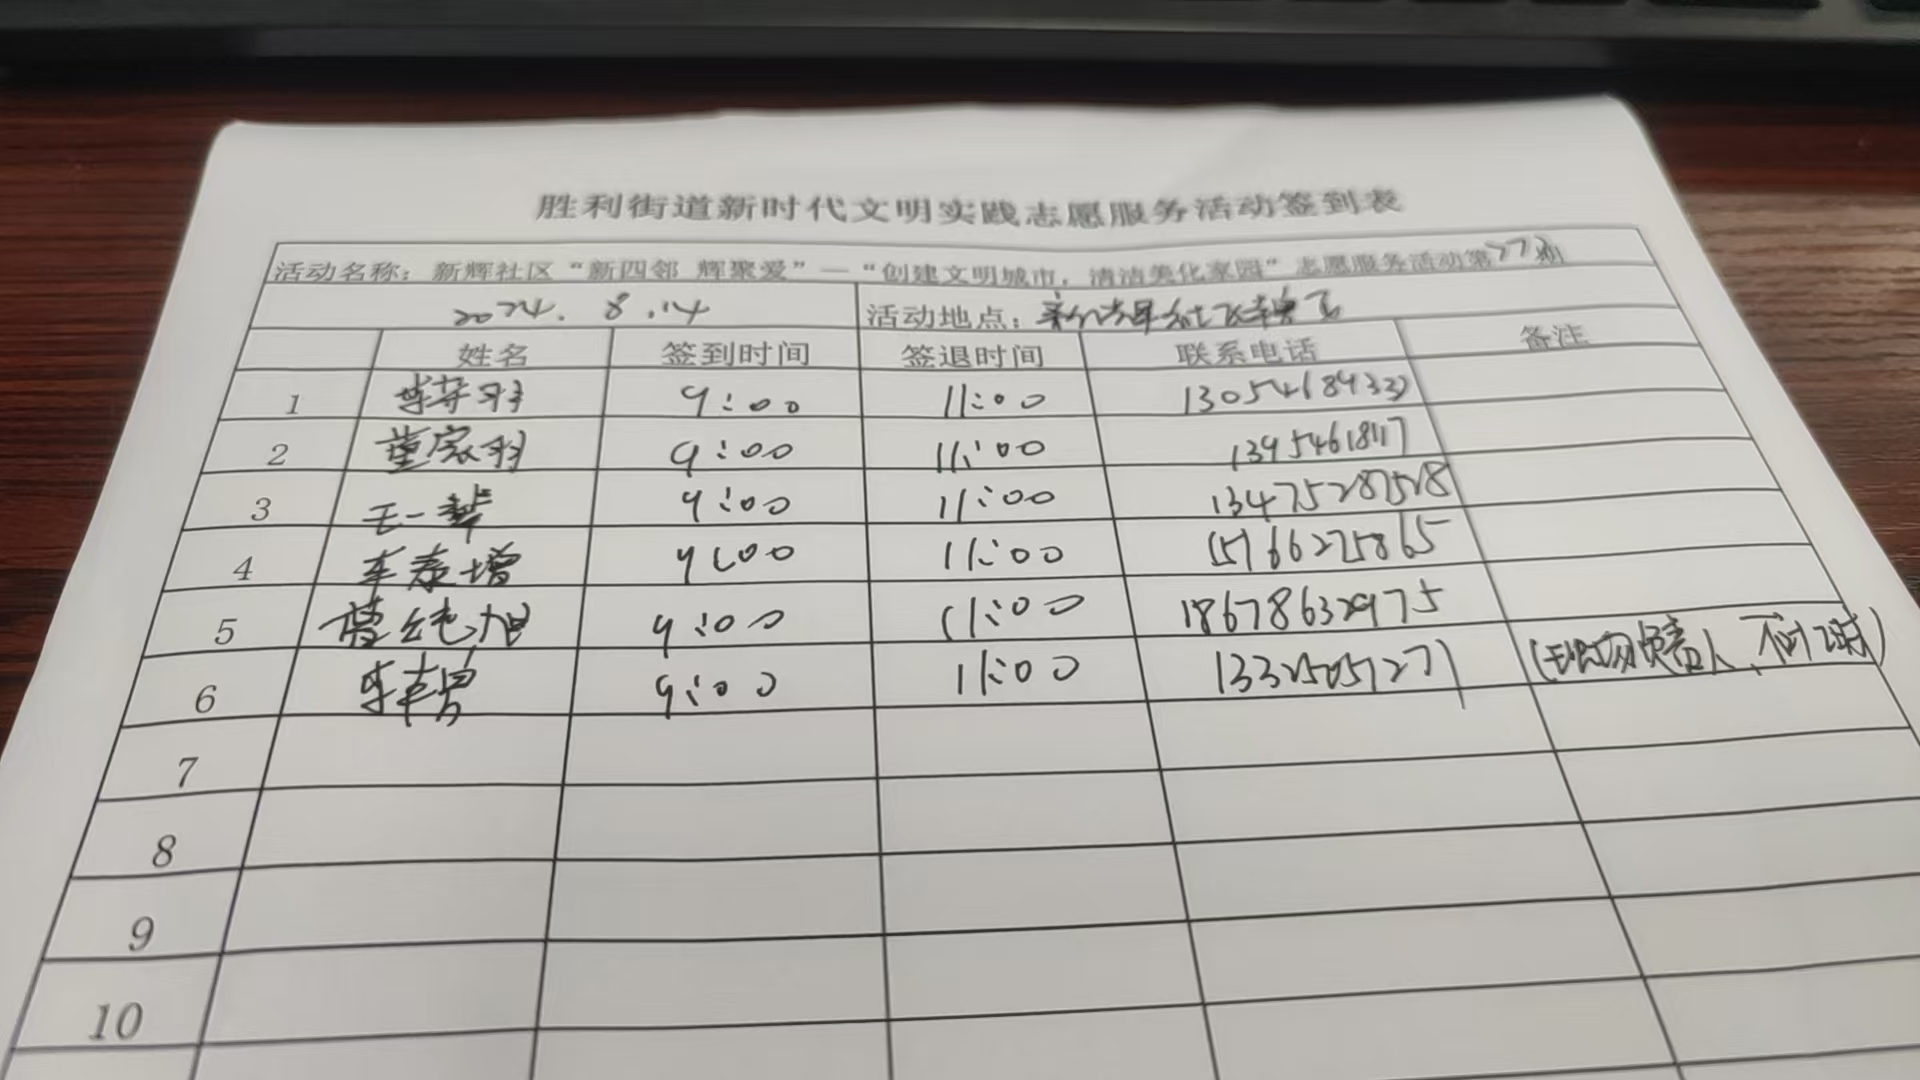 胜利街道新时代文明实践志愿服务活动签到表
活动名称：新辉社区“新四邻 辉聚爱”—“创建文明城市，清洁美化家园”志愿服务活动第77期
2024.8.14 活动地点：新辉社区辖区
姓名 签到时间 签退时间 联系电话 备注
1 9:00 11:00
2 董家羽 9:00 11:00 13954618117
3 王一 9:00 11:00 13475287528
4 车泰增 9:00 11:00 15766275865
5 曹纯旭 9:00 11:00 18678632975
6 9:00 11:00 (现场负责人、不计时)
7
8
9
10